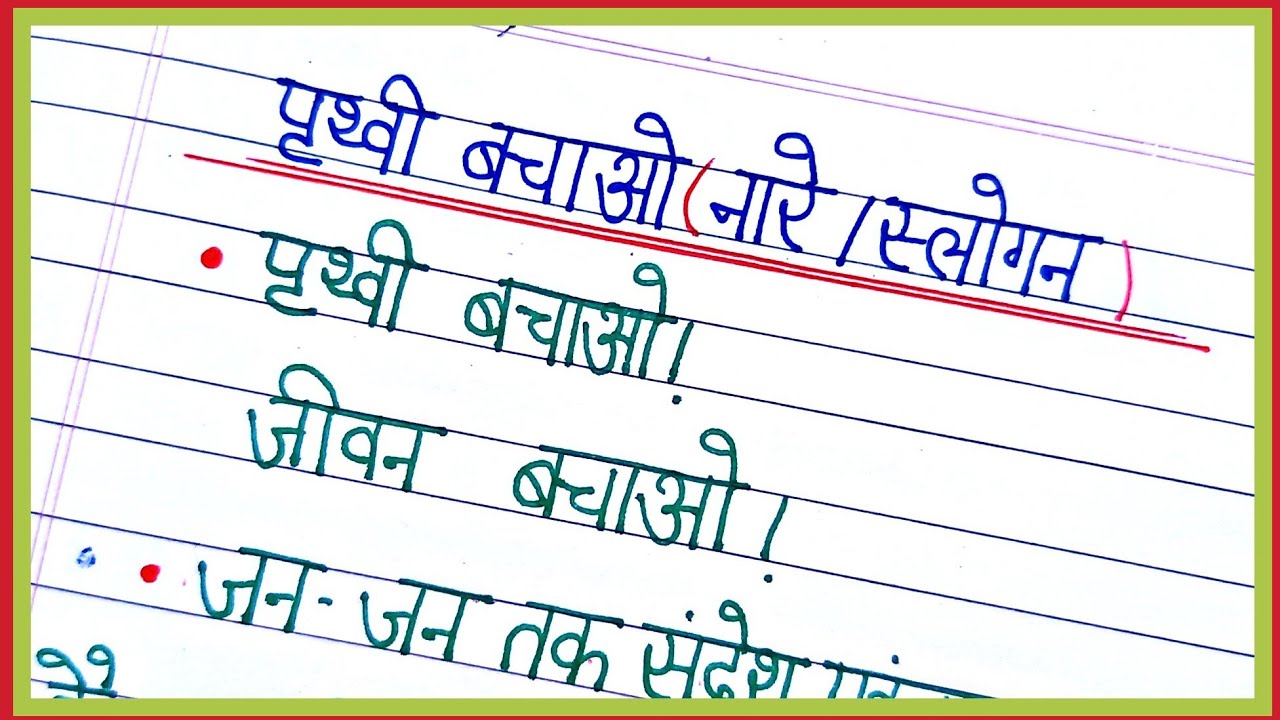 पृथ्वी बचाओ (नारे / स्लोगन)
• पृथ्वी बचाओ!
जीवन बचाओ!
• जन-जन तक संदेश